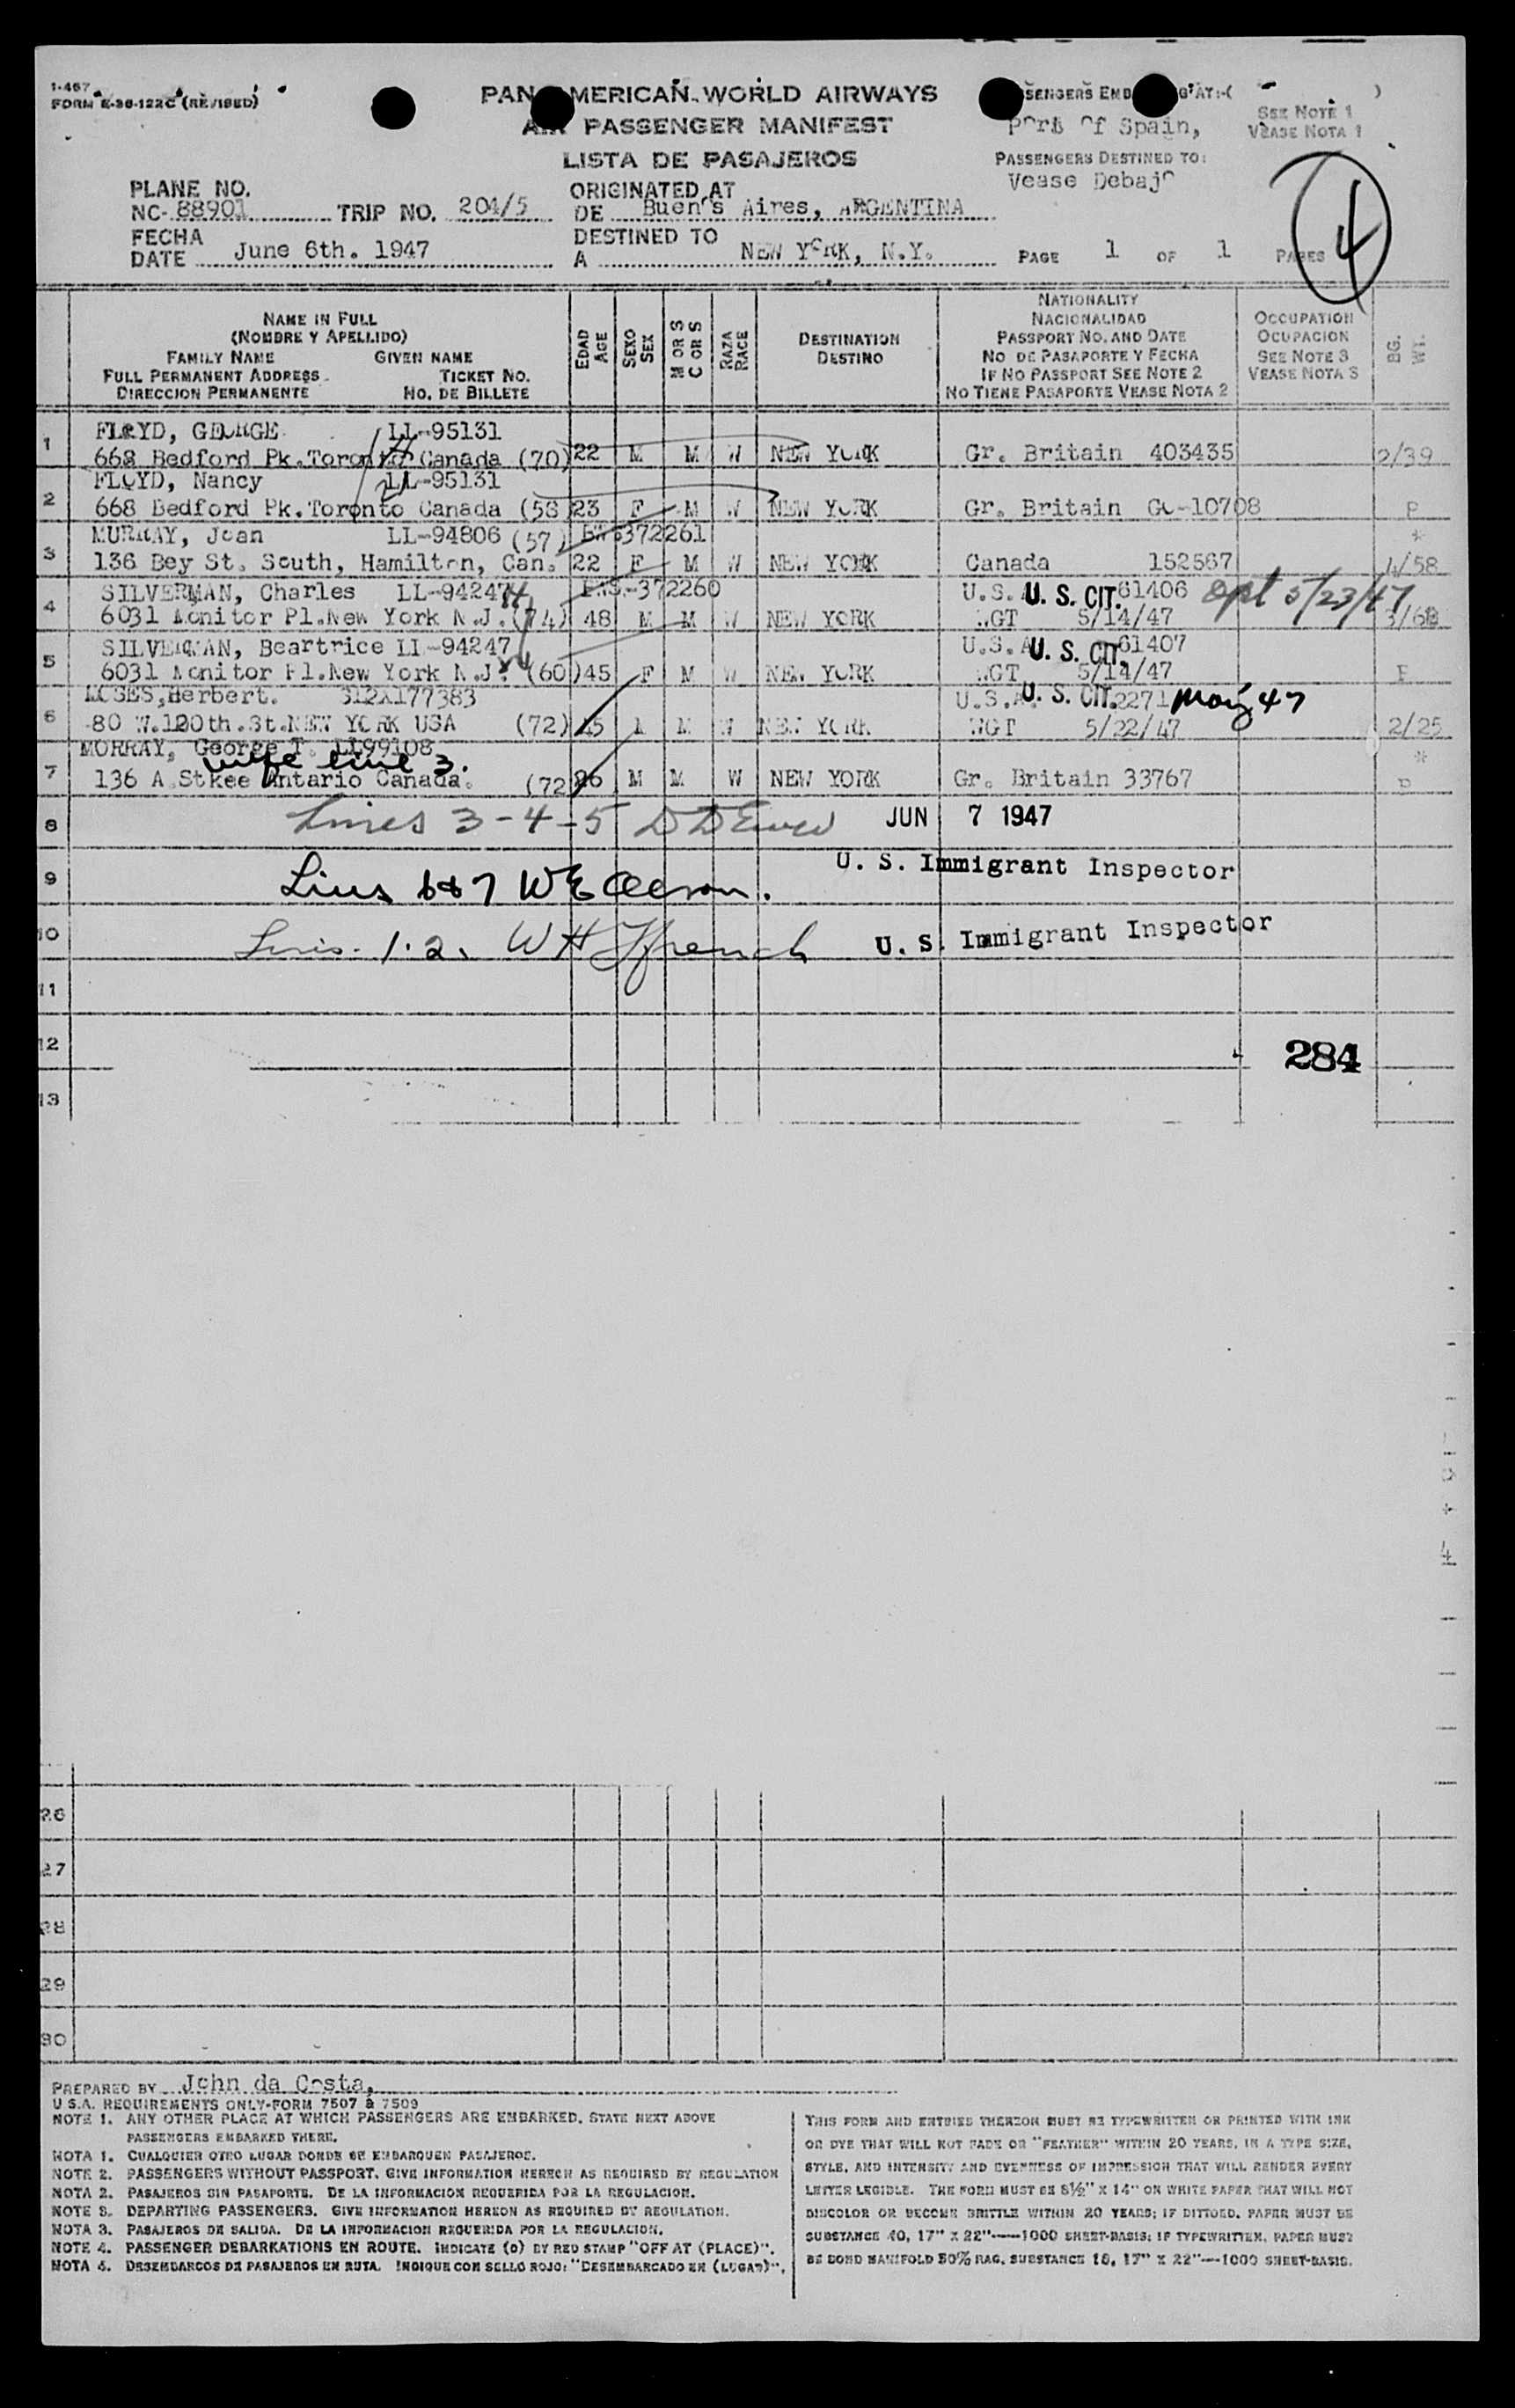 I-467
FORM E-36-122C (REVISED)
PAN AMERICAN WORLD AIRWAYS
AIR PASSENGER MANIFEST
LISTA DE PASAJEROS
Port Of Spain,
SEE NOTE 1
VEASE NOTA 1
PASSENGERS DESTINED TO:
Vease Debajo
PLANE NO.
NC- 88901 TRIP NO. 204/5
ORIGINATED AT
DE Buenos Aires, ARGENTINA
FECHA
DATE June 6th. 1947
DESTINED TO
A NEW YORK, N.Y.
PAGE 1 OF 1 PAGES
4
NAME IN FULL
(NOMBRE Y APELLIDO)
FAMILY NAME GIVEN NAME
FULL PERMANENT ADDRESS TICKET NO.
DIRECCION PERMANENTE NO. DE BILLETE
EDAD
AGE
SEXO
SEX
M OR S
C OR S
RAZA
RACE
DESTINATION
DESTINO
NATIONALITY
NACIONALIDAD
PASSPORT NO. AND DATE
NO DE PASAPORTE Y FECHA
IF NO PASSPORT SEE NOTE 2
NO TIENE PASAPORTE VEASE NOTA 2
OCCUPATION
OCUPACION
SEE NOTE 3
VEASE NOTA 3
BG.
WT.
1 FLOYD, GEORGE. LL-95131
668 Bedford Pk. Toronto Canada (70) 22 M M W NEW YORK Gr. Britain 403435 2/39
2 FLOYD, Nancy LL-95131
668 Bedford Pk. Toronto Canada (58) 23 F M W NEW YORK Gr. Britain GC-10708 P
3 MURRAY, Jean LL-94806 (57) 372261 *
136 Bey St. South, Hamilton, Can. 22 F M W NEW YORK Canada 152567 4/58
4 SILVERMAN, Charles LL-94247 372260 U.S.A. U. S. CIT. 61406 5/23/47
6031 Monitor Pl. New York N.J. (74) 48 M M W NEW YORK WGT 5/14/47
5 SILVERMAN, Beartrice LL-94247 U.S.A. U. S. CIT. 61407
6031 Monitor Pl. New York N.J. (60) 45 F M W NEW YORK WGT 5/14/47 P
6 MOSES, Herbert. 312X177383 U.S.A. U. S. CIT. 2271 May 47
80 W. 120th. St. NEW YORK USA (72) 45 M M W NEW YORK WGT 5/22/47 2/25
7 MORRAY, George T. LL99108 *
wife line 3.
136 A. Stkee Ontario Canada. (72 26 M M W NEW YORK Gr. Britain 33767 P
8 Lines 3-4-5 JUN 7 1947
U. S. Immigrant Inspector
9 Lines 6 & 7
10 Lines 1.2. W H Ffrench U. S. Immigrant Inspector
11
12 284
13
26
27
28
29
30
PREPARED BY John da Costa,
U.S.A. REQUIREMENTS ONLY-FORM 7507 & 7509
NOTE 1. ANY OTHER PLACE AT WHICH PASSENGERS ARE EMBARKED, STATE NEXT ABOVE
PASSENGERS EMBARKED THERE.
NOTA 1. CUALQUIER OTRO LUGAR DONDE SE EMBARQUEN PASAJEROS.
NOTE 2. PASSENGERS WITHOUT PASSPORT. GIVE INFORMATION HEREON AS REQUIRED BY REGULATION
NOTA 2. PASAJEROS SIN PASAPORTE. DE LA INFORMACION REQUERIDA POR LA REGULACION.
NOTE 3. DEPARTING PASSENGERS. GIVE INFORMATION HEREON AS REQUIRED BY REGULATION.
NOTA 3. PASAJEROS DE SALIDA. DE LA INFORMACION REQUERIDA POR LA REGULACION.
NOTE 4. PASSENGER DEBARKATIONS EN ROUTE. INDICATE (O) BY RED STAMP "OFF AT (PLACE)".
NOTA 4. DESEMBARCOS DE PASAJEROS EN RUTA. INDIQUE CON SELLO ROJO: "DESEMBARCADO EN (LUGAR)".
THIS FORM AND ENTRIES THEREON MUST BE TYPEWRITTEN OR PRINTED WITH INK
OR DYE THAT WILL NOT FADE OR "FEATHER" WITHIN 20 YEARS, IN A TYPE SIZE,
STYLE, AND INTENSITY AND EVENNESS OF IMPRESSION THAT WILL RENDER EVERY
LETTER LEGIBLE. THE FORM MUST BE 8½" X 14" ON WHITE PAPER THAT WILL NOT
DISCOLOR OR BECOME BRITTLE WITHIN 20 YEARS; IF DITTOED, PAPER MUST BE
SUBSTANCE 40, 17" X 22"—1000 SHEET-BASIS; IF TYPEWRITTEN, PAPER MUST
BE BOND MANIFOLD 50% RAG, SUBSTANCE 18, 17" X 22"—1000 SHEET-BASIS.